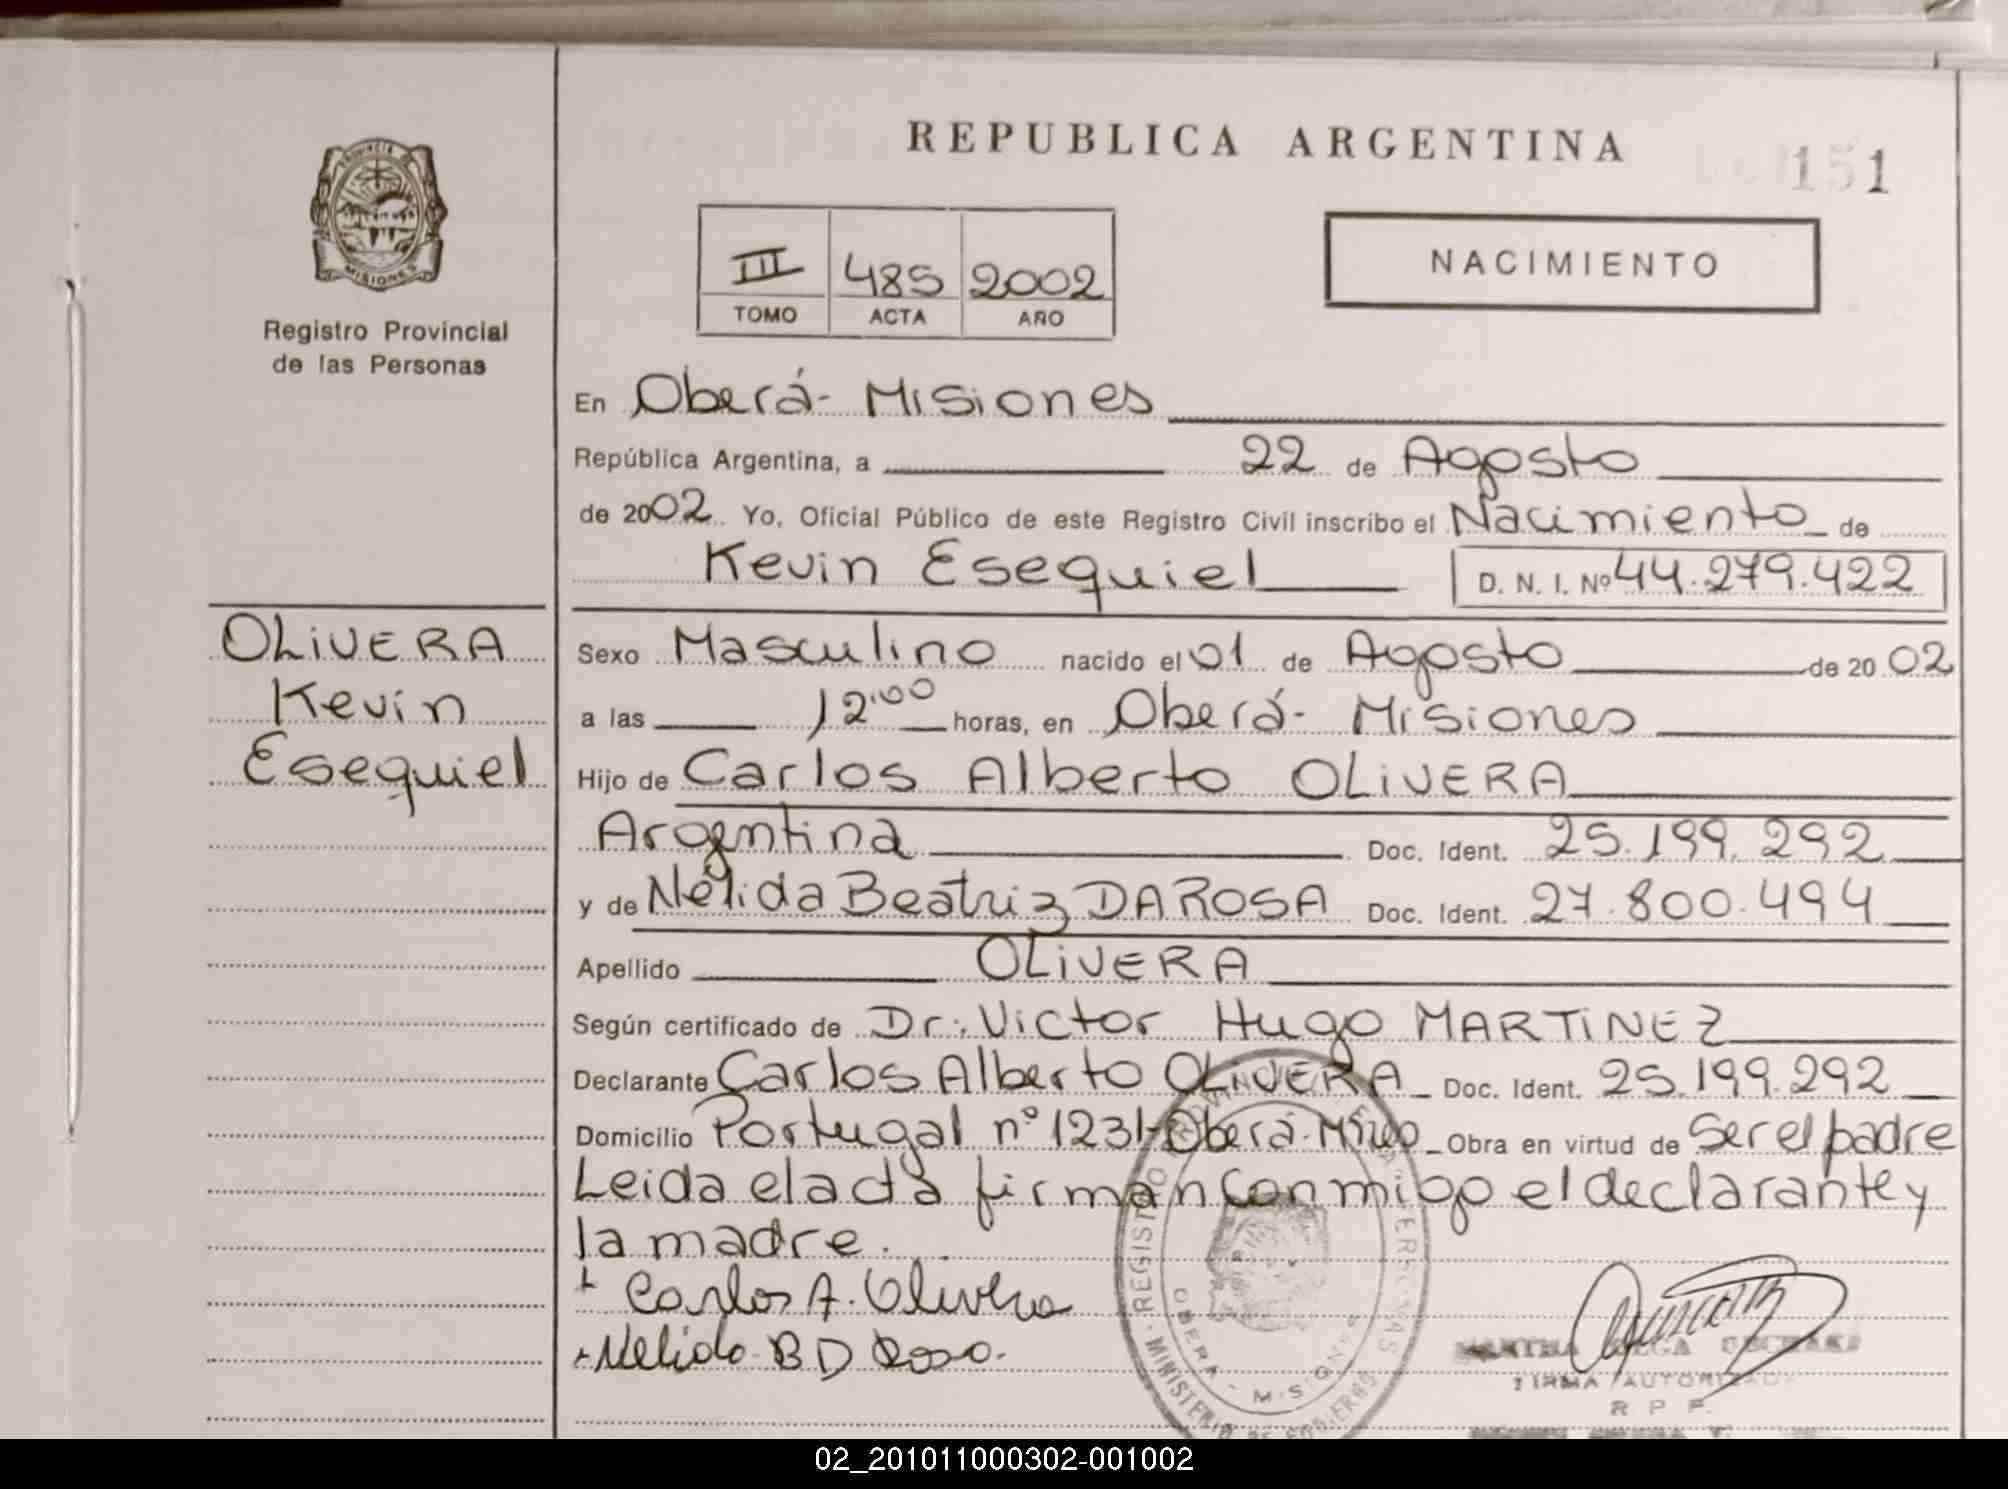 REPUBLICA ARGENTINA
151
PROVINCIA DE
MISIONES
Registro Provincial
de las Personas
III 485 2002
TOMO ACTA AÑO
NACIMIENTO
En Oberá- Misiones
República Argentina, a 22 de Agosto
de 2002 Yo, Oficial Público de este Registro Civil inscribo el Nacimiento de
Kevin Esequiel D. N. I. Nº 44.279.422
OLiVERA
Kevin
Esequiel
Sexo Masculino nacido el 01 de Agosto de 20 02
a las 12:00 horas, en Oberá- Misiones
Hijo de Carlos Alberto OLiVERA
Argentina Doc. Ident. 25.199.292
y de Nélida Beatriz DA ROSA Doc. Ident. 27.800.494
Apellido OLiVERA
Según certificado de Dr: Victor Hugo MARTiNEZ
Declarante Carlos Alberto OLiVERA Doc. Ident. 25.199.292
Domicilio Portugal nº 1231-Oberá-Mnes Obra en virtud de Ser el padre
Leida el acta firman conmigo el declarante y
la madre.
Carlos A. Olivera
Nelida B D Rosa.
REGISTRO PROVINCIAL DE LAS PERSONAS
MINISTERIO DE GOBIERNO
OBERA - MISIONES
FIRMA AUTORIZADA
R P P
02_201011000302-001002